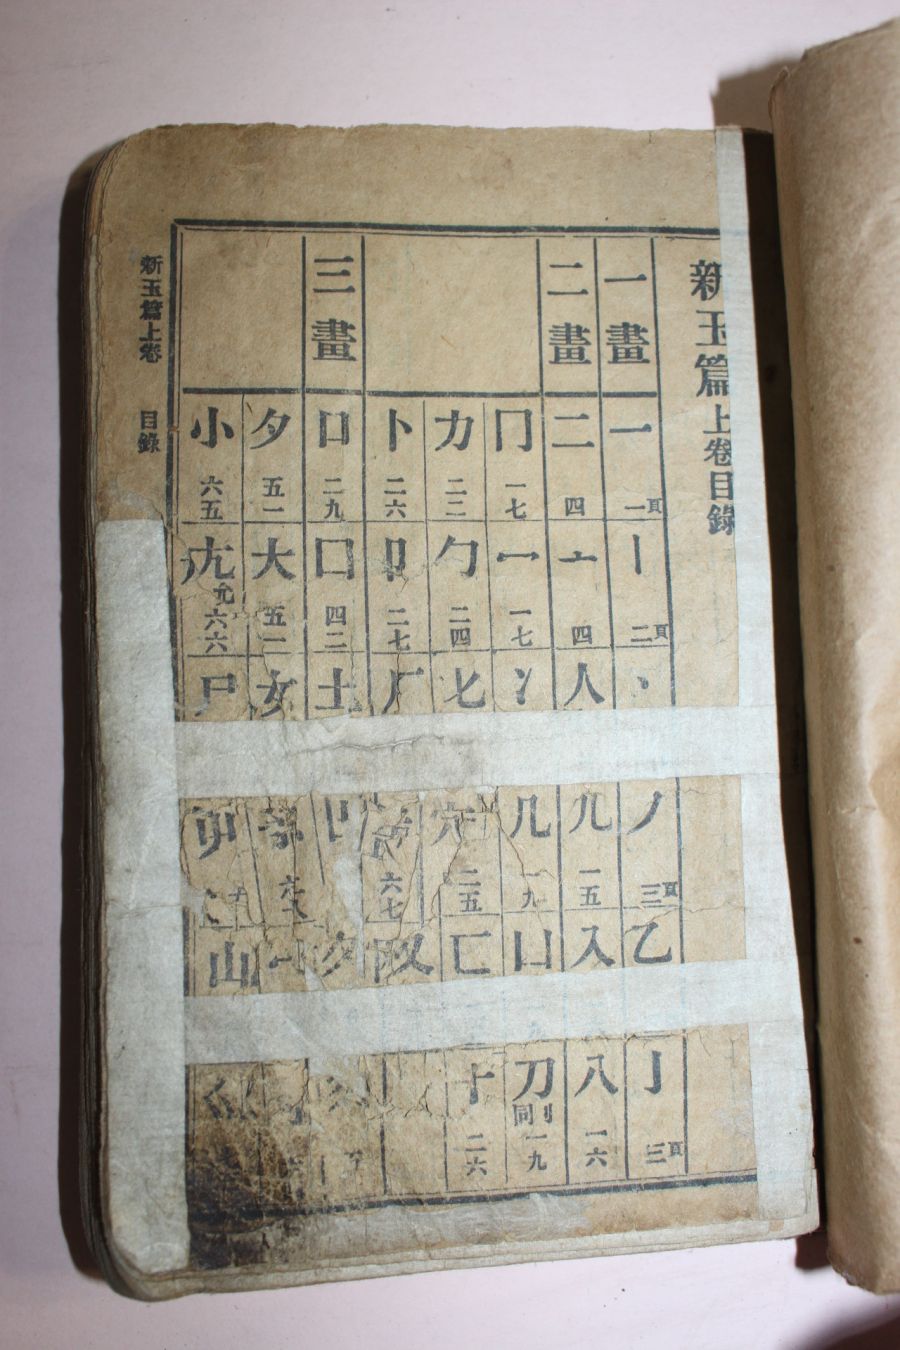 新玉篇上卷目錄
一畫
一 一頁
丨 二頁
丶
丿 三頁
乙
亅 三頁
二畫
二 四
亠 四
人
儿 一五
入
八 一六
冂 一七
冖 一七
冫
几 一九
凵
刀 同刂 一九
力 二二
勹 二四
匕
二五
匚
十 二六
卜 二六
卩 二七
厂
六七
又
三畫
口 二九
囗 四二
土
夊
夕 五一
大 五二
女
小 六五
尢 尣 六六
尸
屮
山
巛
新玉篇上卷 目錄